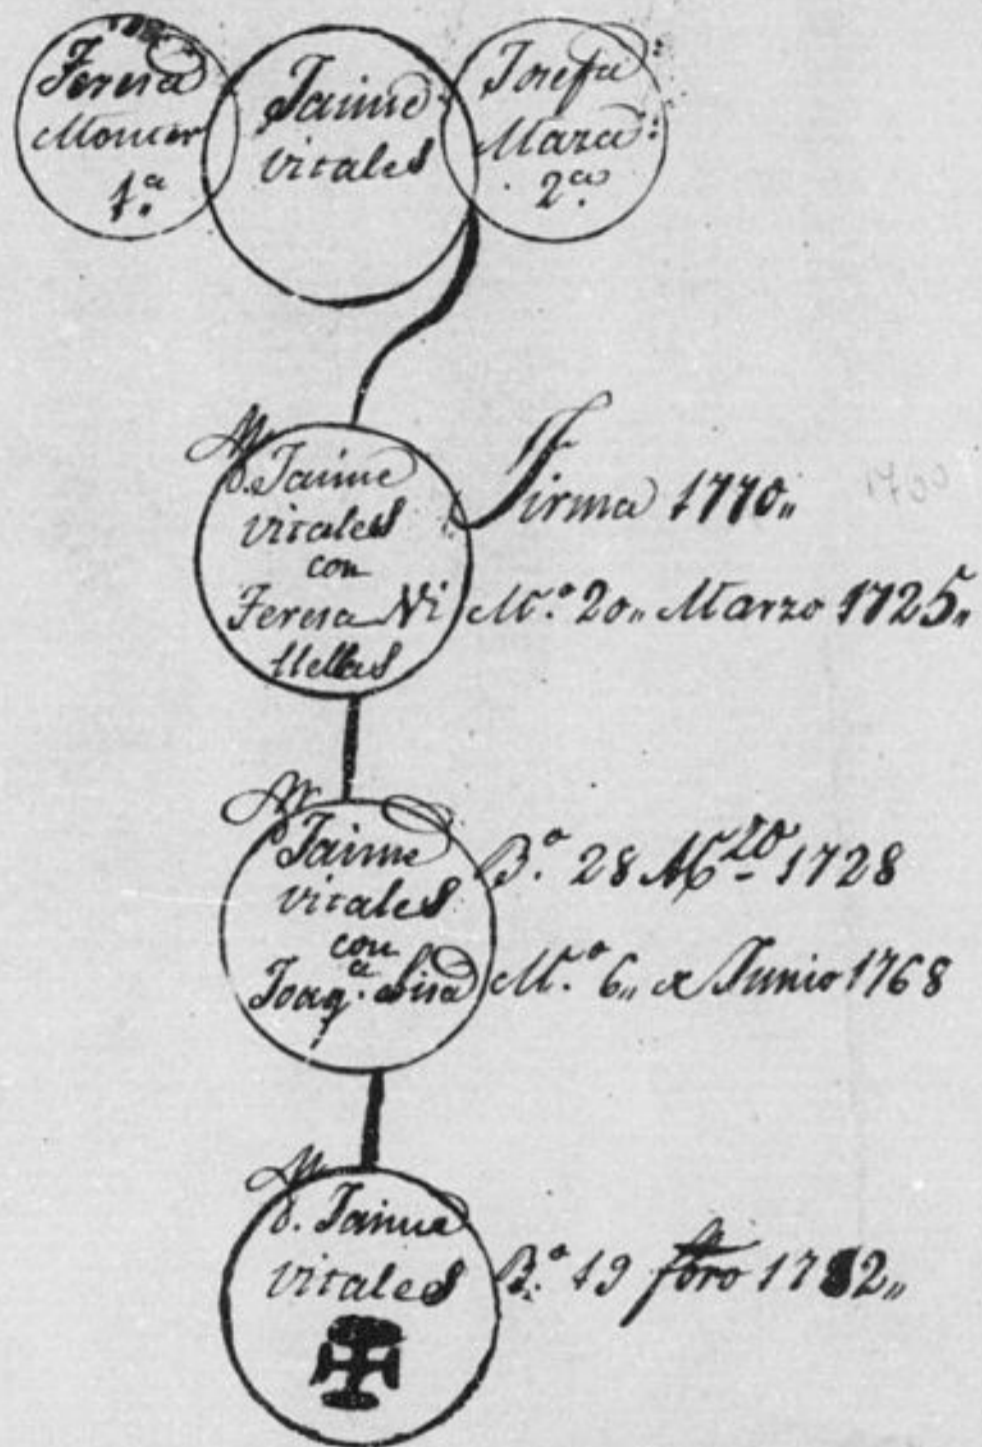 Teresa
Moncer
1.ª
Jaime
vitales
Josefa
Maza
2.ª
D. Jaime
vitales
con
Teresa Vi
llellas
Firma 1770„
M.º 20„ Marzo 1725„
Jaime
vitales
con
Joaq.ª Lisa
B.º 28 M 1728
M.º 6„ de Junio 1768
D. Jaime
vitales
B.º 19 fbro 1782„